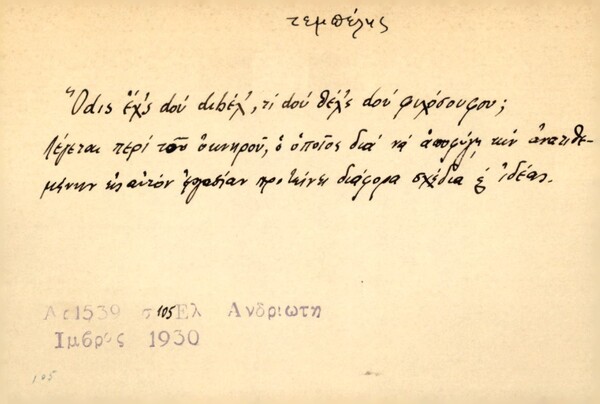 τεμπέλης
Ὅdις ἔχ̑ς dοὺ dιbέλ', τί dοὺ θέλ̑ς dοὺ φιλόσουφου;
Λέγεται περὶ τοῦ ὀκνηροῦ, ὁ ὁποῖος διὰ νὰ ἀποφύγῃ τὴν ἀνατιθε-
μένην εἰς αὐτὸν ἐργασίαν προτείνει διάφορα σχέδια & ἰδέας.
Αρ1539 σ 105 Ελ Ανδριωτη
Ιμβρος 1930
105